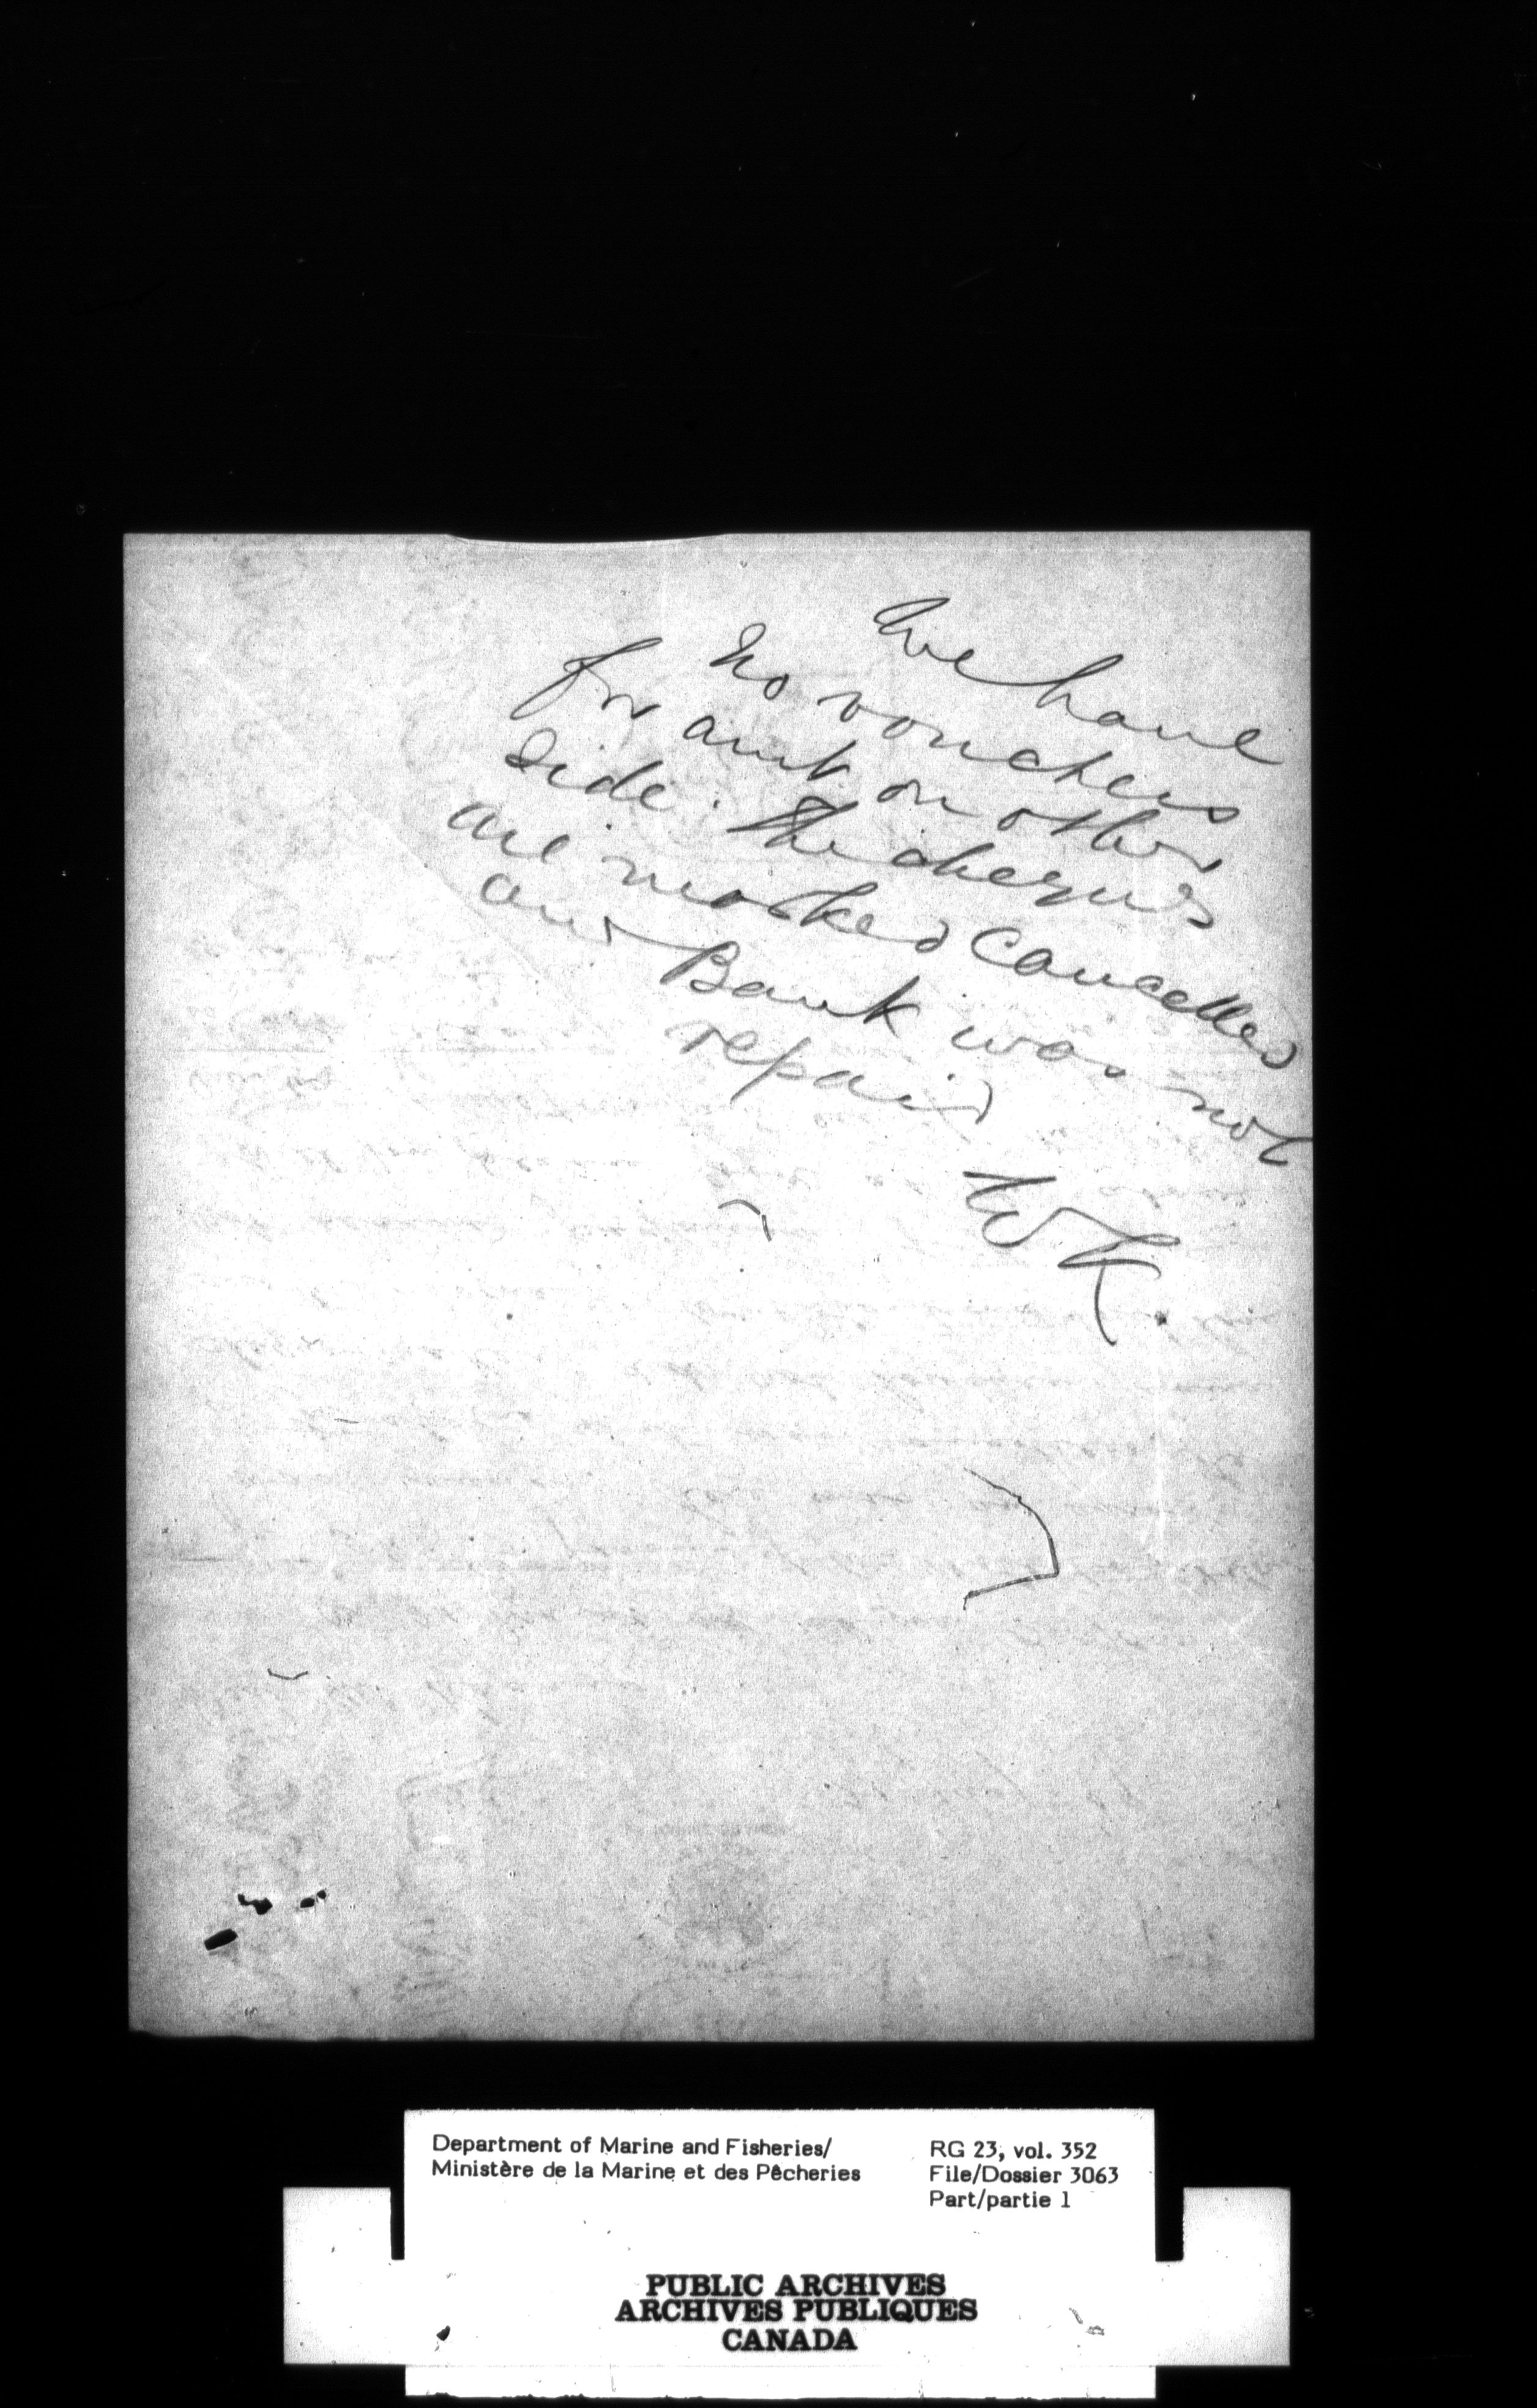 We have
no vouchers
for amt on other
side. The cheques
are marked cancelled
and Bank was not
repaid
WK.
Department of Marine and Fisheries/
Ministère de la Marine et des Pêcheries
RG 23, vol. 352
File/Dossier 3063
Part/partie 1
PUBLIC ARCHIVES
ARCHIVES PUBLIQUES
CANADA